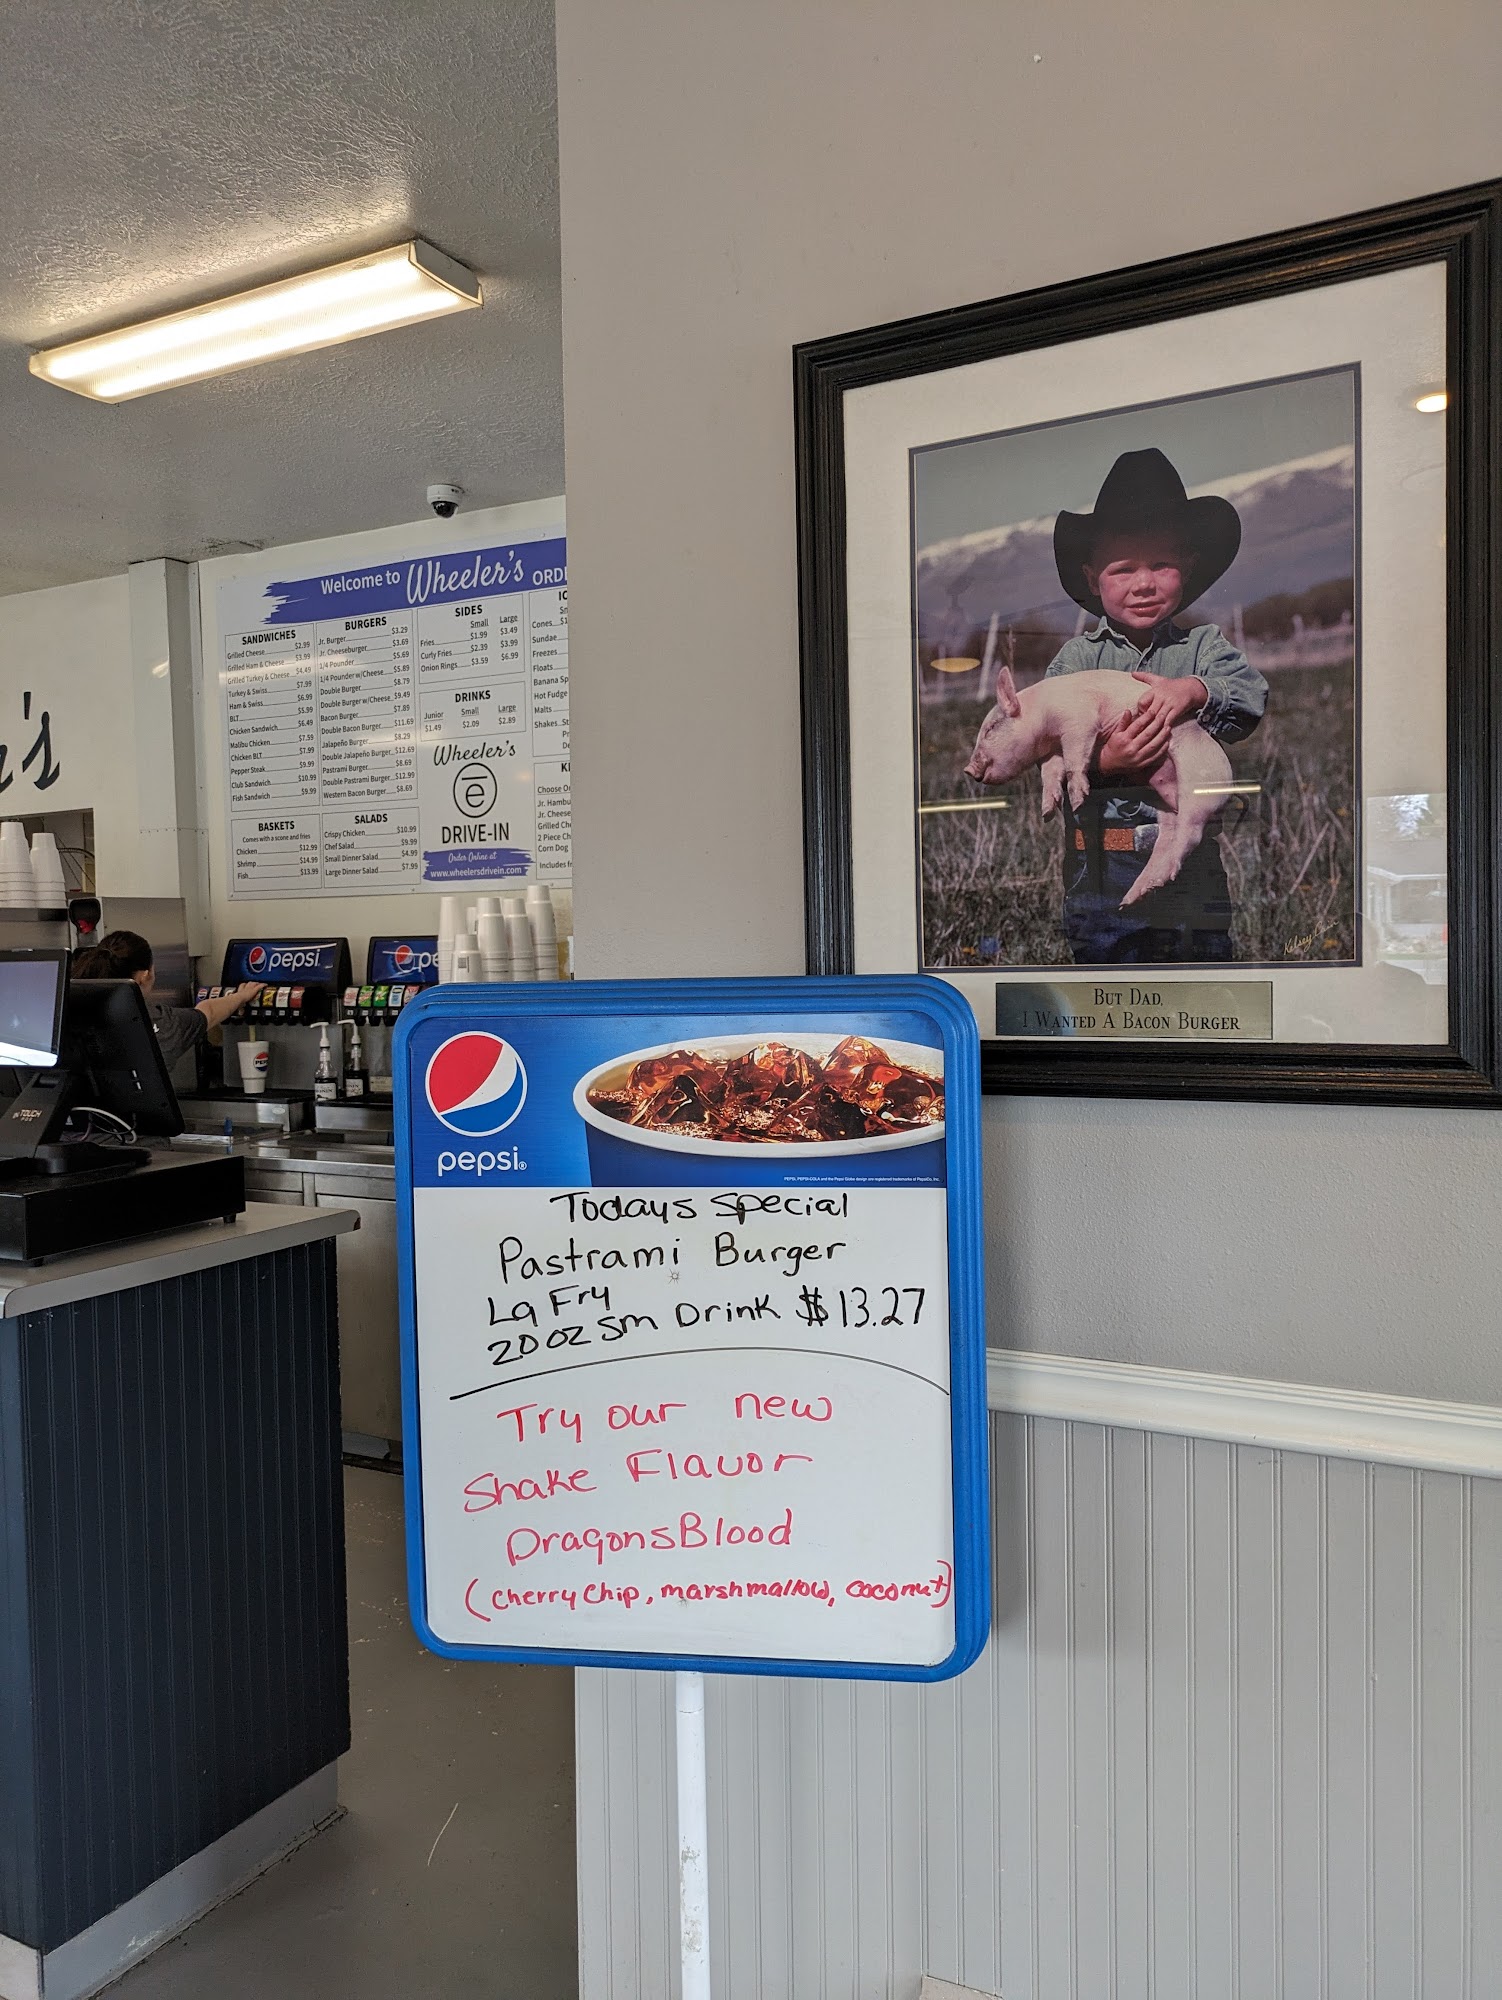 Welcome to Wheeler's ORD
SANDWICHES
Grilled Cheese $2.99
Grilled Ham & Cheese $3.99
Grilled Turkey & Cheese $4.49
Turkey & Swiss $7.99
Ham & Swiss $6.99
BLT $5.99
Chicken Sandwich $6.49
Malibu Chicken $7.59
Chicken BLT $7.99
Pepper Steak $9.99
Club Sandwich $10.99
Fish Sandwich $9.99
BASKETS
Comes with a scone and fries
Chicken $12.99
Shrimp $14.99
Fish $13.99
BURGERS
Jr. Burger $3.29
Jr. Cheeseburger $3.69
1/4 Pounder $5.69
1/4 Pounder w/Cheese $5.89
Double Burger $8.79
Double Burger w/Cheese $9.49
Bacon Burger $7.89
Double Bacon Burger $11.69
Jalapeño Burger $8.29
Double Jalapeño Burger $12.69
Pastrami Burger $8.69
Double Pastrami Burger $12.99
Western Bacon Burger $8.69
SALADS
Crispy Chicken $10.99
Chef Salad $9.99
Small Dinner Salad $4.99
Large Dinner Salad $7.99
SIDES
Small Large
Fries $1.99 $3.49
Curly Fries $2.39 $3.99
Onion Rings $3.59 $6.99
DRINKS
Junior Small Large
$1.49 $2.09 $2.89
Wheeler's
e
DRIVE-IN
Order Online at
www.wheelersdrivein.com
IC
Sm
Cones $1
Sundae
Freezes
Floats
Banana Sp
Hot Fudge
Malts
Shakes St
Pr
De
KI
Choose On
Jr. Hambu
Jr. Cheese
Grilled Ch
2 Piece Ch
Corn Dog
Includes fr
r's
pepsi
pe
IN TOUCH
POS
BUT DAD,
I WANTED A BACON BURGER
pepsi®
Todays Special
Pastrami Burger
Lg Fry
20 oz Sm Drink $13.27
Try our new
Shake Flavor
DragonsBlood
(cherry chip, marshmallow, coconut)